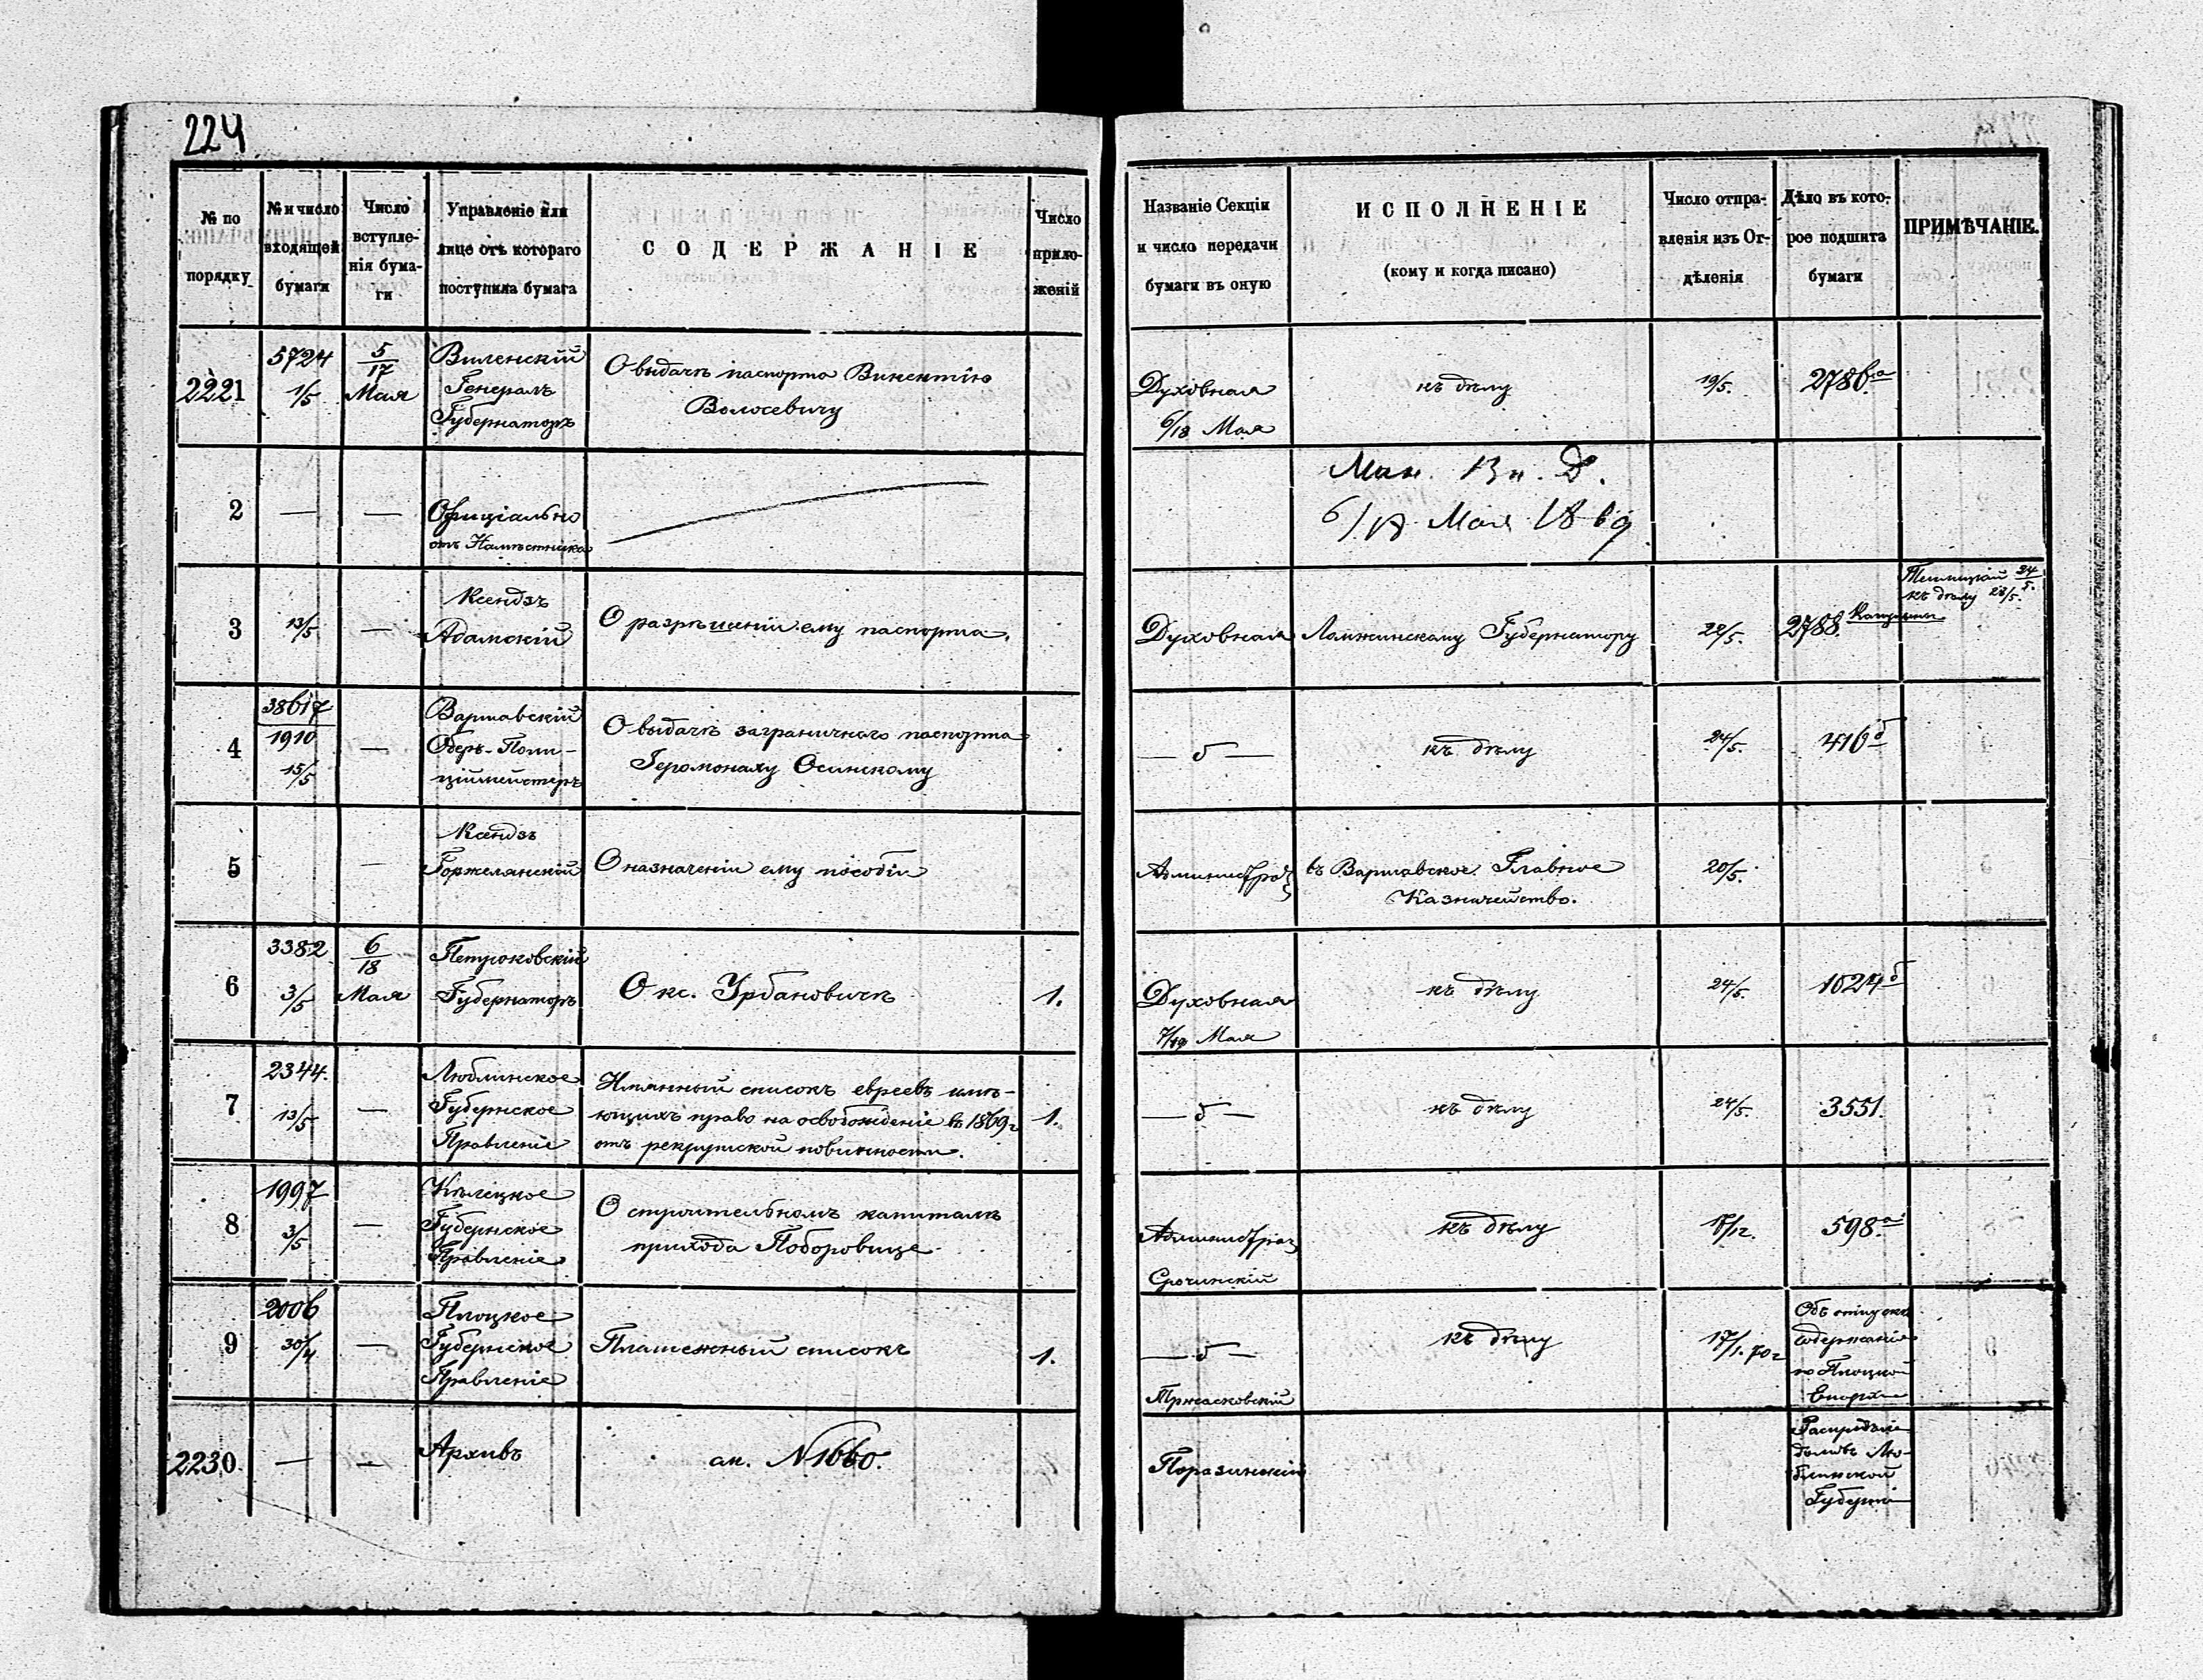 224
№ по порядку
№ и число входящей бумаги
Число вступле-нія бума-ги
Управленіе или лице отъ котораго поступила бумага
СОДЕРЖАНІЕ
Число прило-женій
Названіе Секціи и число передачи бумаги въ оную
ИСПОЛНЕНІЕ
(кому и когда писано)
Число отпра-вленія изъ От-дѣленія
Дѣло въ кото-рое подшита бумаги
ПРИМѢЧАНІЕ.
2221
5724
1/5
5/17
Мая
Виленскій
Генералъ
Губернаторъ
О выдачѣ паспорта Викентію
Волосевичу
Духовная
6/18 Мая
къ дѣлу
19/5.
2786.а
2
—
—
Офиціально
отъ Намѣстника
Мин. Вн. Д.
6/18 Мая 1869
3
13/5
—
Ксендзъ
Адамскій
О разрѣшеніи ему паспорта.
Духовная
Ломжинскому Губернатору
22/5.
2788.
24/5.
къ дѣлу 28/5.
4
38617
1910
15/5
—
Варшавскій
Оберъ-Поли-
ціймейстеръ
О выдачѣ заграничнаго паспорта
Іеромонаху Осинскому
— б —
къ дѣлу
24/5.
416б
5
—
Ксендзъ
Горжелянскій
О назначеніи ему пособія
Администрац
въ Варшавское Главное
Казначейство.
20/5.
6
3382
3/5
6/18
Мая
Петроковскій
Губернаторъ
О кс. Урбановичѣ
1.
Духовная
7/19 Мая
къ дѣлу
24/5.
1024б
7
2344.
13/5
—
Люблинское
Губернское
Правленіе
Имянный списокъ евреевъ имѣ-
ющихъ право на освобожденіе въ 1869 г
отъ рекрутской повинности.
1.
— б —
къ дѣлу
24/5.
3551.
8
1997
3/5
—
Кѣлецкое
Губернское
Правленіе
О строительномъ капиталѣ
прихода Поборовице
Администрац
Срочинскій
къ дѣлу
17/12.
598.а
9
2006
30/4
—
Плоцкое
Губернское
Правленіе
Платежный списокъ
1.
— б —
Тржасковскій
къ дѣлу
17/1. 70 г
Объ отпускѣ
содержанія
по Плоцкой
Епархіи
2230.
—
—
Архивъ
ан. N 1660.
Поразинскій
Люблинской
Губерніи